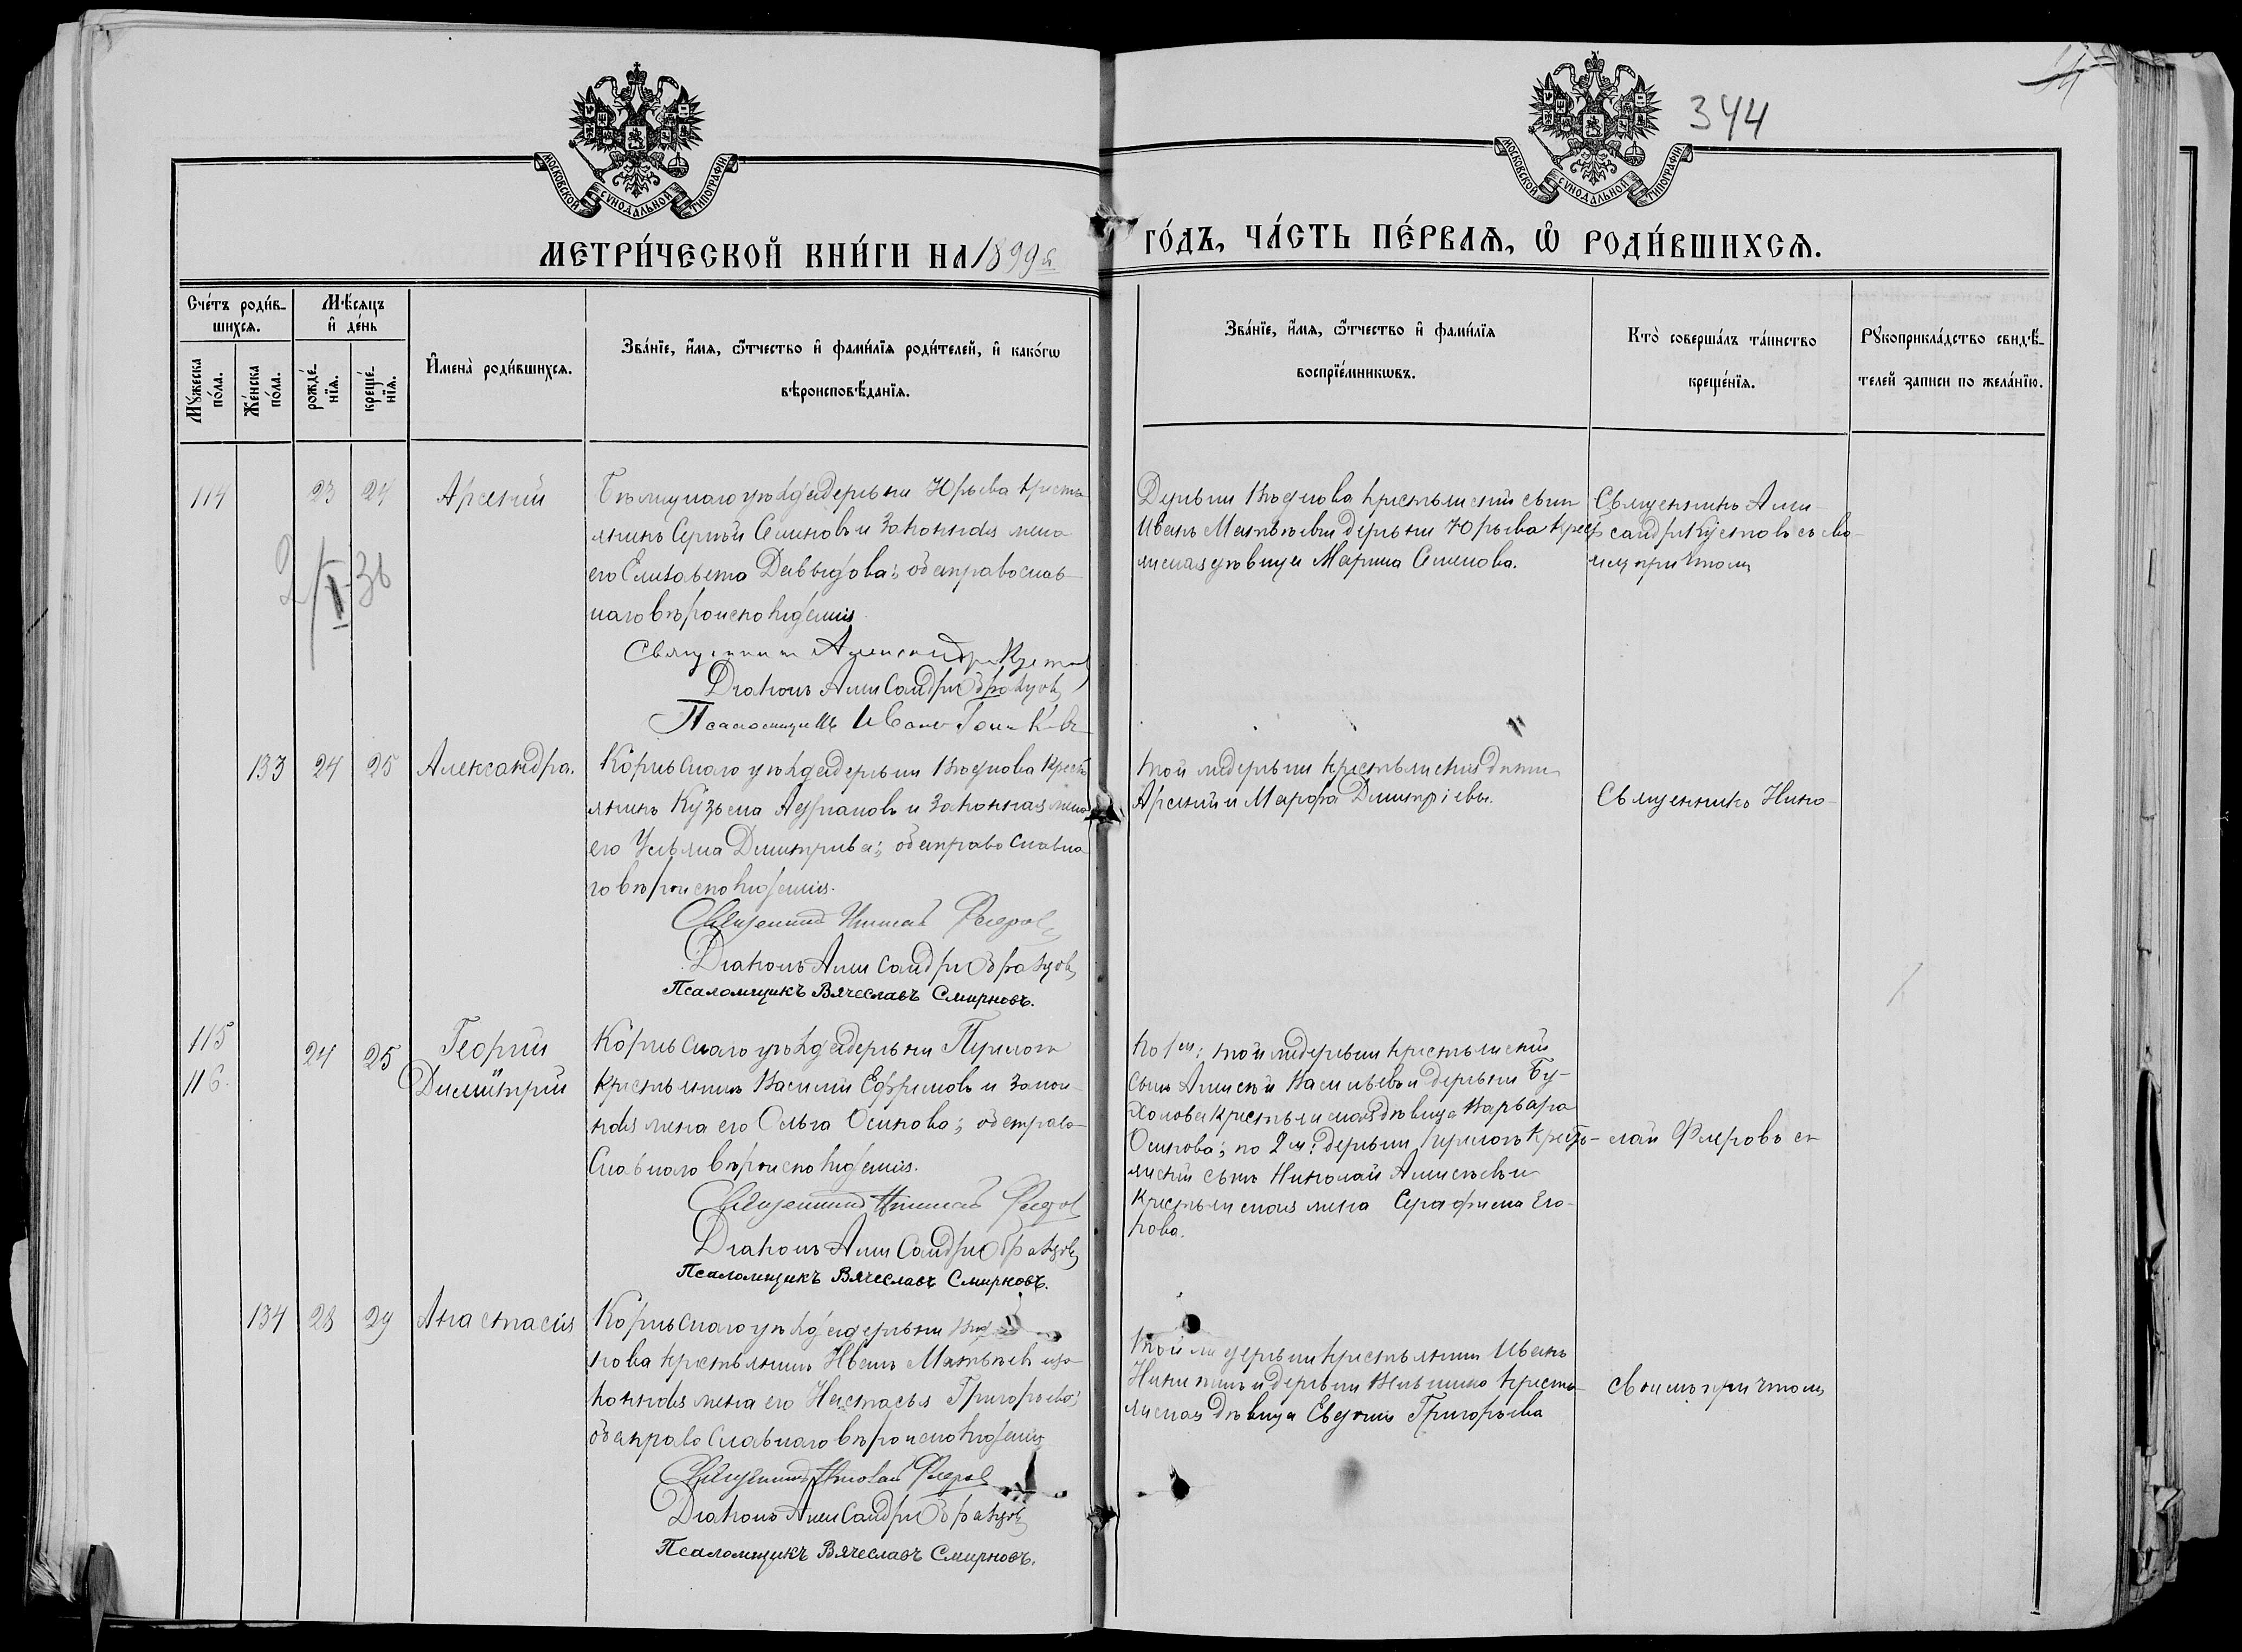 344
МОСКОВСКОЙ СѴНОДАЛЬНОЙ ТИПОГРАФІИ
МОСКОВСКОЙ СѴНОДАЛЬНОЙ ТИПОГРАФІИ
МЕТРИ́ЧЕСКОЙ КНИ́ГИ НА 1899й
ГО́ДЪ, ЧА́СТЬ ПЕ́РВАѦ, Ѡ҆ РОДИ́ВШИХСѦ.
Сче́тъ роди́в-
шихсѧ.
Мѣ́сѧцъ
и҆ де́нь
Мꙋ́жеска
по́ла.
Же́нска
по́ла.
рожде́-
нїѧ.
креще́-
нїѧ.
И҆мена̀ роди́вшихсѧ.
Зва́нїе, и҆́мѧ, ѻ҆́тчество и҆ фами́лїѧ роди́телей, и҆ како́гѡ
вѣроисповѣ́данїѧ.
Зва́нїе, и҆́мѧ, ѻ҆́тчество и҆ фами́лїѧ
воспрїе́мникѡвъ.
Кто̀ соверша́лъ та́инство
креще́нїѧ.
Рꙋкоприкла́дство свидѣ́-
телей записи по жела́нїю.
114
23
24
Арсеній
Бѣлицкаго уѣзда деревни Юрьева кресть
янинъ Сергѣй Семеновъ и законная жена
его Елизавета Давыдова; оба православ-
наго вѣроисповѣданія
Священникъ Александръ Кустов
Діаконъ Александръ Образцовъ
Псаломщикъ Иванъ
Деревни крестьянскій сынъ
Иванъ Матвѣевъ и деревни Юрьева крест
янская дѣвица Марина Семенова.
Священникъ Алек-
сандръ Кустовъ съ сво-
имъ причтомъ
133
24
25
Александра.
уѣзда деревни кресть
янинъ Кузьма Адріановъ и законная жена
его Ульяна Димитріева; оба православна
го вѣроисповѣданія.
Священникъ Николай Флеров
Діаконъ Александръ Образцовъ
Псаломщикъ Вячеславъ Смирновъ.
той же деревни крестьянскія дѣти
Арсеній и Марфа Димитріевы.
Священникъ Нико-
115
116.
24
25
Георгій
Димитрій
уѣзда деревни
крестьянинъ Василій Ефремовъ и закон-
ная жена его Ольга Осипова; оба право-
славнаго вѣроисповѣданія.
Священникъ Николай Флеров
Діаконъ Александръ Образцовъ
Псаломщикъ Вячеславъ Смирновъ.
той же деревни крестьянскій
сынъ Алексѣй Васильевъ и деревни Бу-
холова крестьянская дѣвица Варвара
Осипова; по 2му: деревни кресть-
янскій сынъ Николай Алексѣевъ и
крестьянская жена Серафима Его-
рова.
лай Флеровъ съ
134
28
29
Анастасія
уѣзда деревни
нова крестьянинъ Иванъ Матвѣевъ и за-
конная жена его Настасья Григорьева;
оба православнаго вѣроисповѣданія
Священникъ Николай Флеров
Діаконъ Александръ Образцовъ
Псаломщикъ Вячеславъ Смирновъ.
той же деревни крестьянинъ Иванъ
Никитинъ и деревни кресть-
янская дѣвица Евдокія Григорьева
своимъ причтомъ